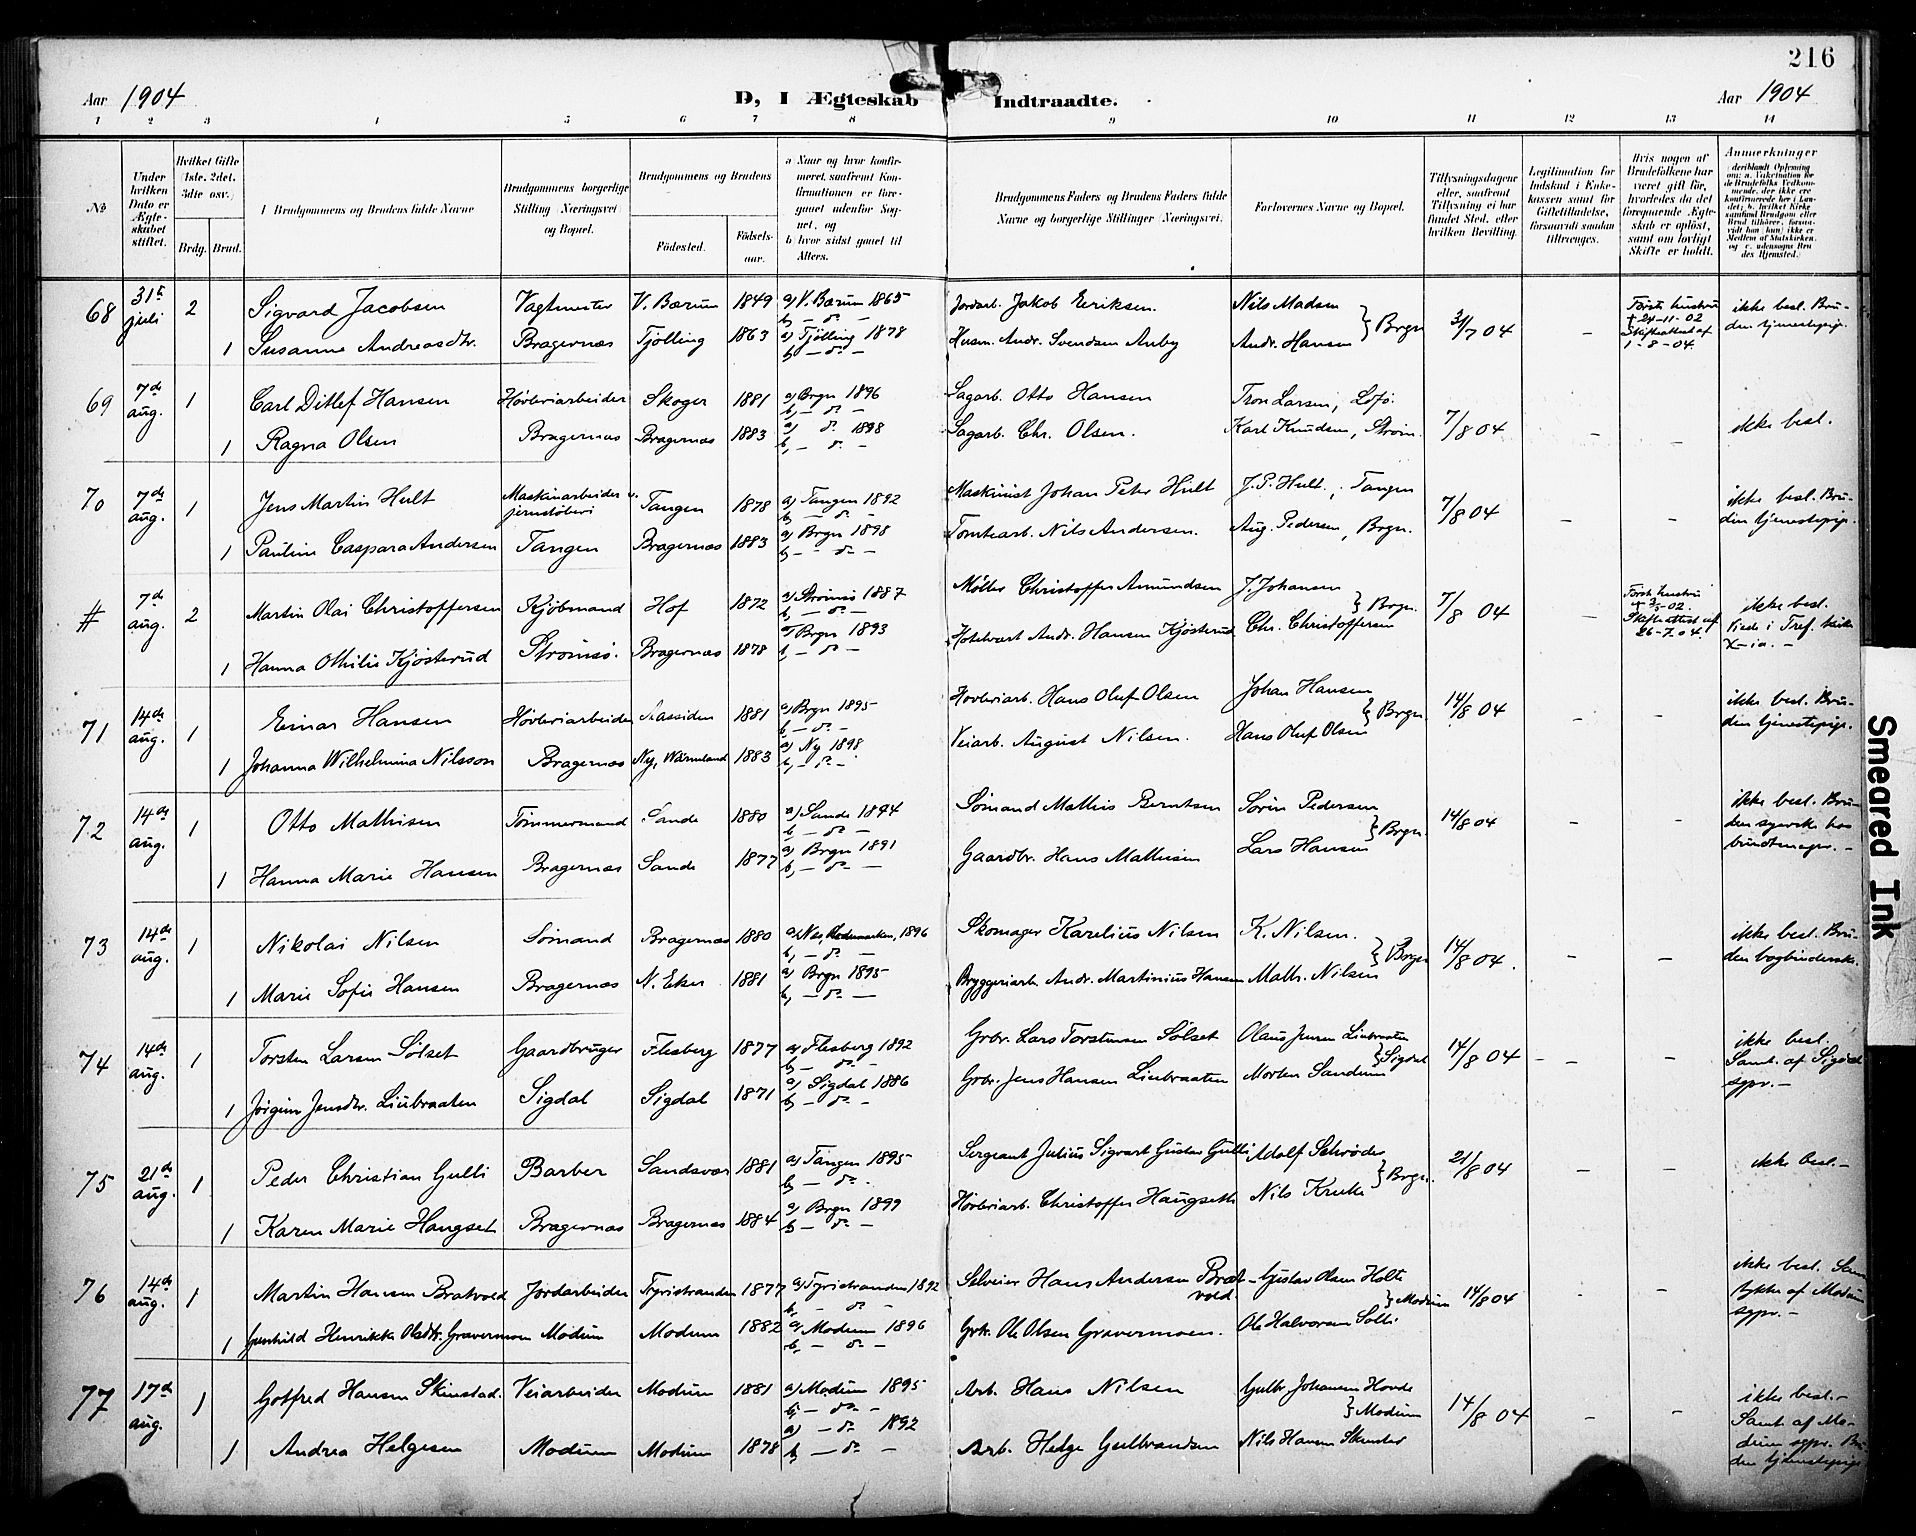 216
Aar 1904 D, I Ægteskab Indtraadte. Aar 1904
1 2 3 4 5 6 7 8 9 10 11 12 13 14
No
Under hvilken Dato er Ægteskabet stiftet.
Hvilket Gifte (1ste, 2det, 3die osv.)
Brdg. Brud.
Brudgommens og Brudens fulde Navne
Brudgommens borgerlige Stilling (Næringsvei) og Bopæl.
Brudgommens og Brudens
Fødested. Fødselsaar.
a Naar og hvor konfirmeret, saafremt Konfirmationen er foregaaet udenfor Sognet, og
b) hvor sidst gaaet til Alters.
Brudgommens Faders og Brudens Faders fulde Navne og borgerlige Stillinger (Næringsvei.
Forlovernes Navne og Bopæl.
Tillysningsdagene eller, saafremt Tillysning ei har fundet Sted, efter hvilken Bevilling.
Legitimation for Indskud i Enkekassen samt for Giftetilladelse, forsaavidt saadan tiltrænges.
Hvis nogen af Brudefolkene har været gift før, hvorledes da det foregaaende Ægteskab er opløst, samt om lovligt Skifte er holdt.
Anmerkninger
68 31te juli 2 Sigvard Jacobsen Vagtmester V. Bærum 1849 a) V. Bærum 1865 b, — do — Jordarb. Jakob Eeriksen. Nils Madsen } Brgn 31/7 04 — Første hustru + 24-11-02 Skifteattest af 1-8-04. ikke besl. Bruden tjenestepig.
1 Susanne Andreasdtr. Bragernæs Tjølling 1863 a) Tjølling 1878 b) — do — Husm. Andr. Svendsen Auby Andr. Hansen
69 7de aug. 1 Carl Ditlef Hansen Høvleriarbeider Skoger 1881 a) Brgn 1896 b, — do — Sagarb. Otto Hansen Tron Larsen, 7/8 04 — — ikke besl.
1 Ragna Olsen Bragernæs Bragernæs 1883 a) do 1898 b, — do — Sagarb. Chr. Olsen. Karl Knudsen, Strøm.
70 7de aug. 1 Jens Martin Hult Maskinarbeider v. jernstøberi Tangen 1878 a) Tangen 1892 b — do — Maskinist Johan Peter Hult J. P. Hult, Tangen 7/8 04 — — ikke besl. Bruden tjenestepige.
1 Pauline Caspara Andersen Tangen Bragernæs 1883 a) Brgn 1898 b, — do — Tomtearb. Nils Andersen. Aug. Pedersen, Brgn.
# 7de aug. 2 Martin Olai Christoffersen Kjøbmand Hof 1872 a) Strømsø 1887 b, — do — Møller Christoffer Amundsen J. Johansen } Brgn. 7/8 04 — Første hustru Skifteattest af 26-7.04. ikke besl.
1 Hanna Othilie Kjøsterud Strømsø. Bragernæs 1878 a) Brgn 1893 b, — do — Hotelvært Andr. Hansen Kjøsterud Chr. Christoffersen
71 14de aug. 1 Einar Hansen Høvleriarbeider Aassiden 1881 a) Brgn 1895 b, — do — Høvleriarb. Hans Oluf Olsen Johan Hansen } Brgn. 14/8 04 — — ikke besl. Bruden tjenestepige.
1 Johanna Wilhelmina Nilsson Bragernæs Ny, Wärmland 1883 a) Ny 1898 b, — do — Veiarb. August Nilsen. Hans Oluf Olsen
72 14de aug. 1 Otto Mathisen Tømmermand Sande 1880 a) Sande 1894 b, — do — Sømand Mathis Berntsen Sørin Pedersen } Brgn. 14/8 04 — — ikke besl. Bruden syerske hos bundtmager. —
1 Hanna Marie Hansen Bragernæs Sande 1877 a) Brgn 1891 b, — do — Gaardbr. Hans Mathisen Lars Hansen
73 14de aug. 1 Nikolai Nilsen Sømand Bragernæs 1880 a) Nes, Hedemarken, 1896 b, — do — Skomager Karelius Nilsen K. Nilsen. } Brgn 14/8 04. — — ikke besl. Bruden bogbinderske.
1 Marie Sofie Hansen Bragernæs N. Eker 1881 a) Brgn 1895 b, — do — Bryggeriarb. Andr. Martinius Hansen Math. Nilsen
74 14de aug. 1 Torsten Larsen Sølset Gaardbruger Flesberg 1877 a) Flesberg 1892 b — do — Grbr. Lars Torstensen Sølset Olaus Jensen Linbraaten } Sigdal 14/8 04 — — — ikke besl. Samt. af Sigdal sgpr. —
1 Jørgine Jensdtr. Linbraaten Sigdal Sigdal 1871 a) Sigdal 1886 b, — do — Grbr. Jens Hansen Linbraaten Morten Sandum
75 21de aug. 1 Peder Christian Gulli Barber Sandsvær 1881 a) Tangen 1895 b, — do — Sergeant Julius Sigvart Gustav Gulli Adolf Schrøder } Brgn. 21/8 04 — — ikke besl. —
1 Karen Marie Haugset Bragernæs Bragernæs 1884 a) Brgn 1899 b — do — Høvleriarb. Christoffer Haugseth Nils Kruke
76 14de aug. 1 Martin Hansen Bratvold Jordarbeider Tyristranden 1877 a) Tyristranden 1892 b, — do — Selveier Hans Andersen Bratvold Gustav Olsen Holte } Modum 14/8 04 — — ikke besl. Samtykke af Modum sgpr. —
1 Gunhild Henrikka Olsdtr. Gravermoen Modum Modum 1882 a) Modum 1896 b, — do — Grbr. Ole Olsen Gravermoen. Ole Halvorsen Solli
77 17de aug. 1 Gotfred Hansen Skinstad. Veiarbeider Modum 1881 a) Modum 1895 b, — do — Arb. Hans Nilsen Gulbr. Johansen Hovde } Modum 14/8 04 — — ikke besl. — Samt. af Modum sgpr. Bruden tjenestepige
1 Andrea Helgesen Modum Modum 1878 a) — do — 1892 b — do — Arb. Helge Gulbrandsen Nils Hansen Skinstad
Smeared Ink